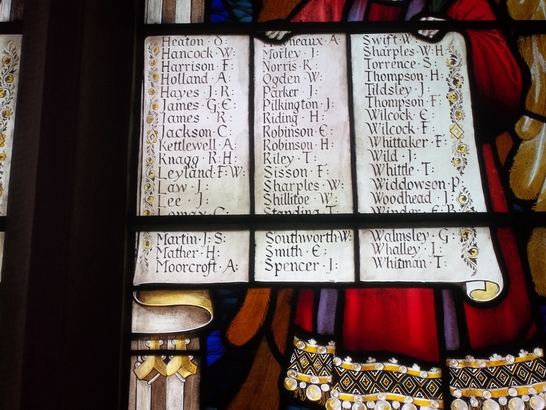 Heaton · S:
Hancock · W:
Harrison · F:
Holland · A:
Hayes · J · R:
James · G · E:
James · R:
Jackson · C:
Kettlewell · A:
Knagg · R · H:
Leyland · F · W:
Law · J:
Lee · J:
Lomax · C:
Martin · J · S:
Mather · H:
Moorcroft · A:
A:
Morley · J:
Norris · R:
Ogden · W:
Parker · J:
Pilkington · J:
Riding · H:
Robinson · E:
Robinson · H:
Riley · T:
Sisson · F:
Sharples · W:
Shillitoe · W:
Standing · T:
Southworth · W:
Smith · E:
Spencer · J:
Swift · W
Sharples · W · H:
Torrence · S:
Thompson · H:
Tildsley · J:
Thompson · F:
Wilcock · E:
Wilcock · F:
Whittaker · F:
Wild · J:
Whittle · T:
Widdowson · P:
Woodhead · J:
Winder · F · R:
Walmsley · G:
Whalley · J:
Whitman · T: